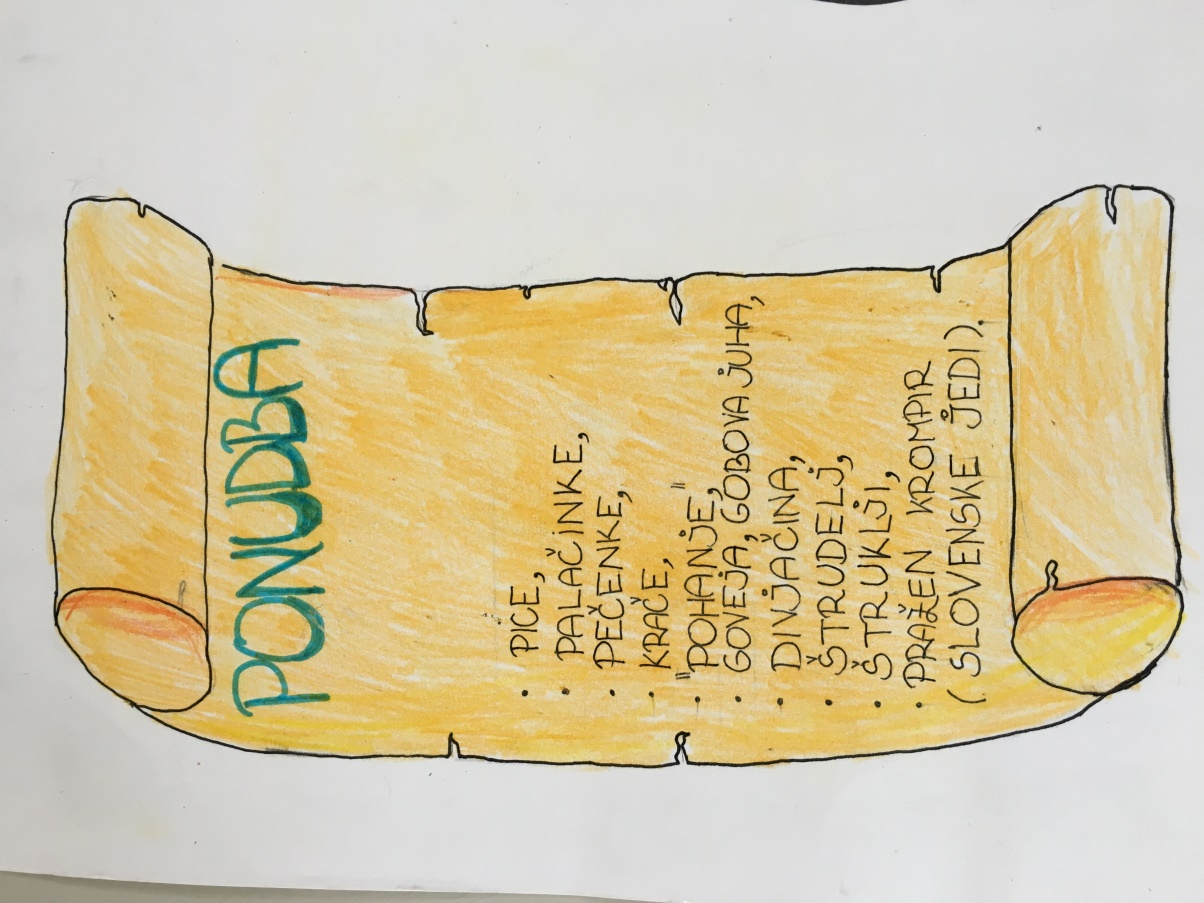 PONUDBA
• PICE,
• PALAČINKE,
• PEČENKE,
• KRAČE,
• "POHANJE,"
• GOVEJA, GOBOVA JUHA,
• DIVJAČINA,
• ŠTRUDELJ,
• ŠTRUKLJI,
• PRAŽEN KROMPIR
(SLOVENSKE JEDI).